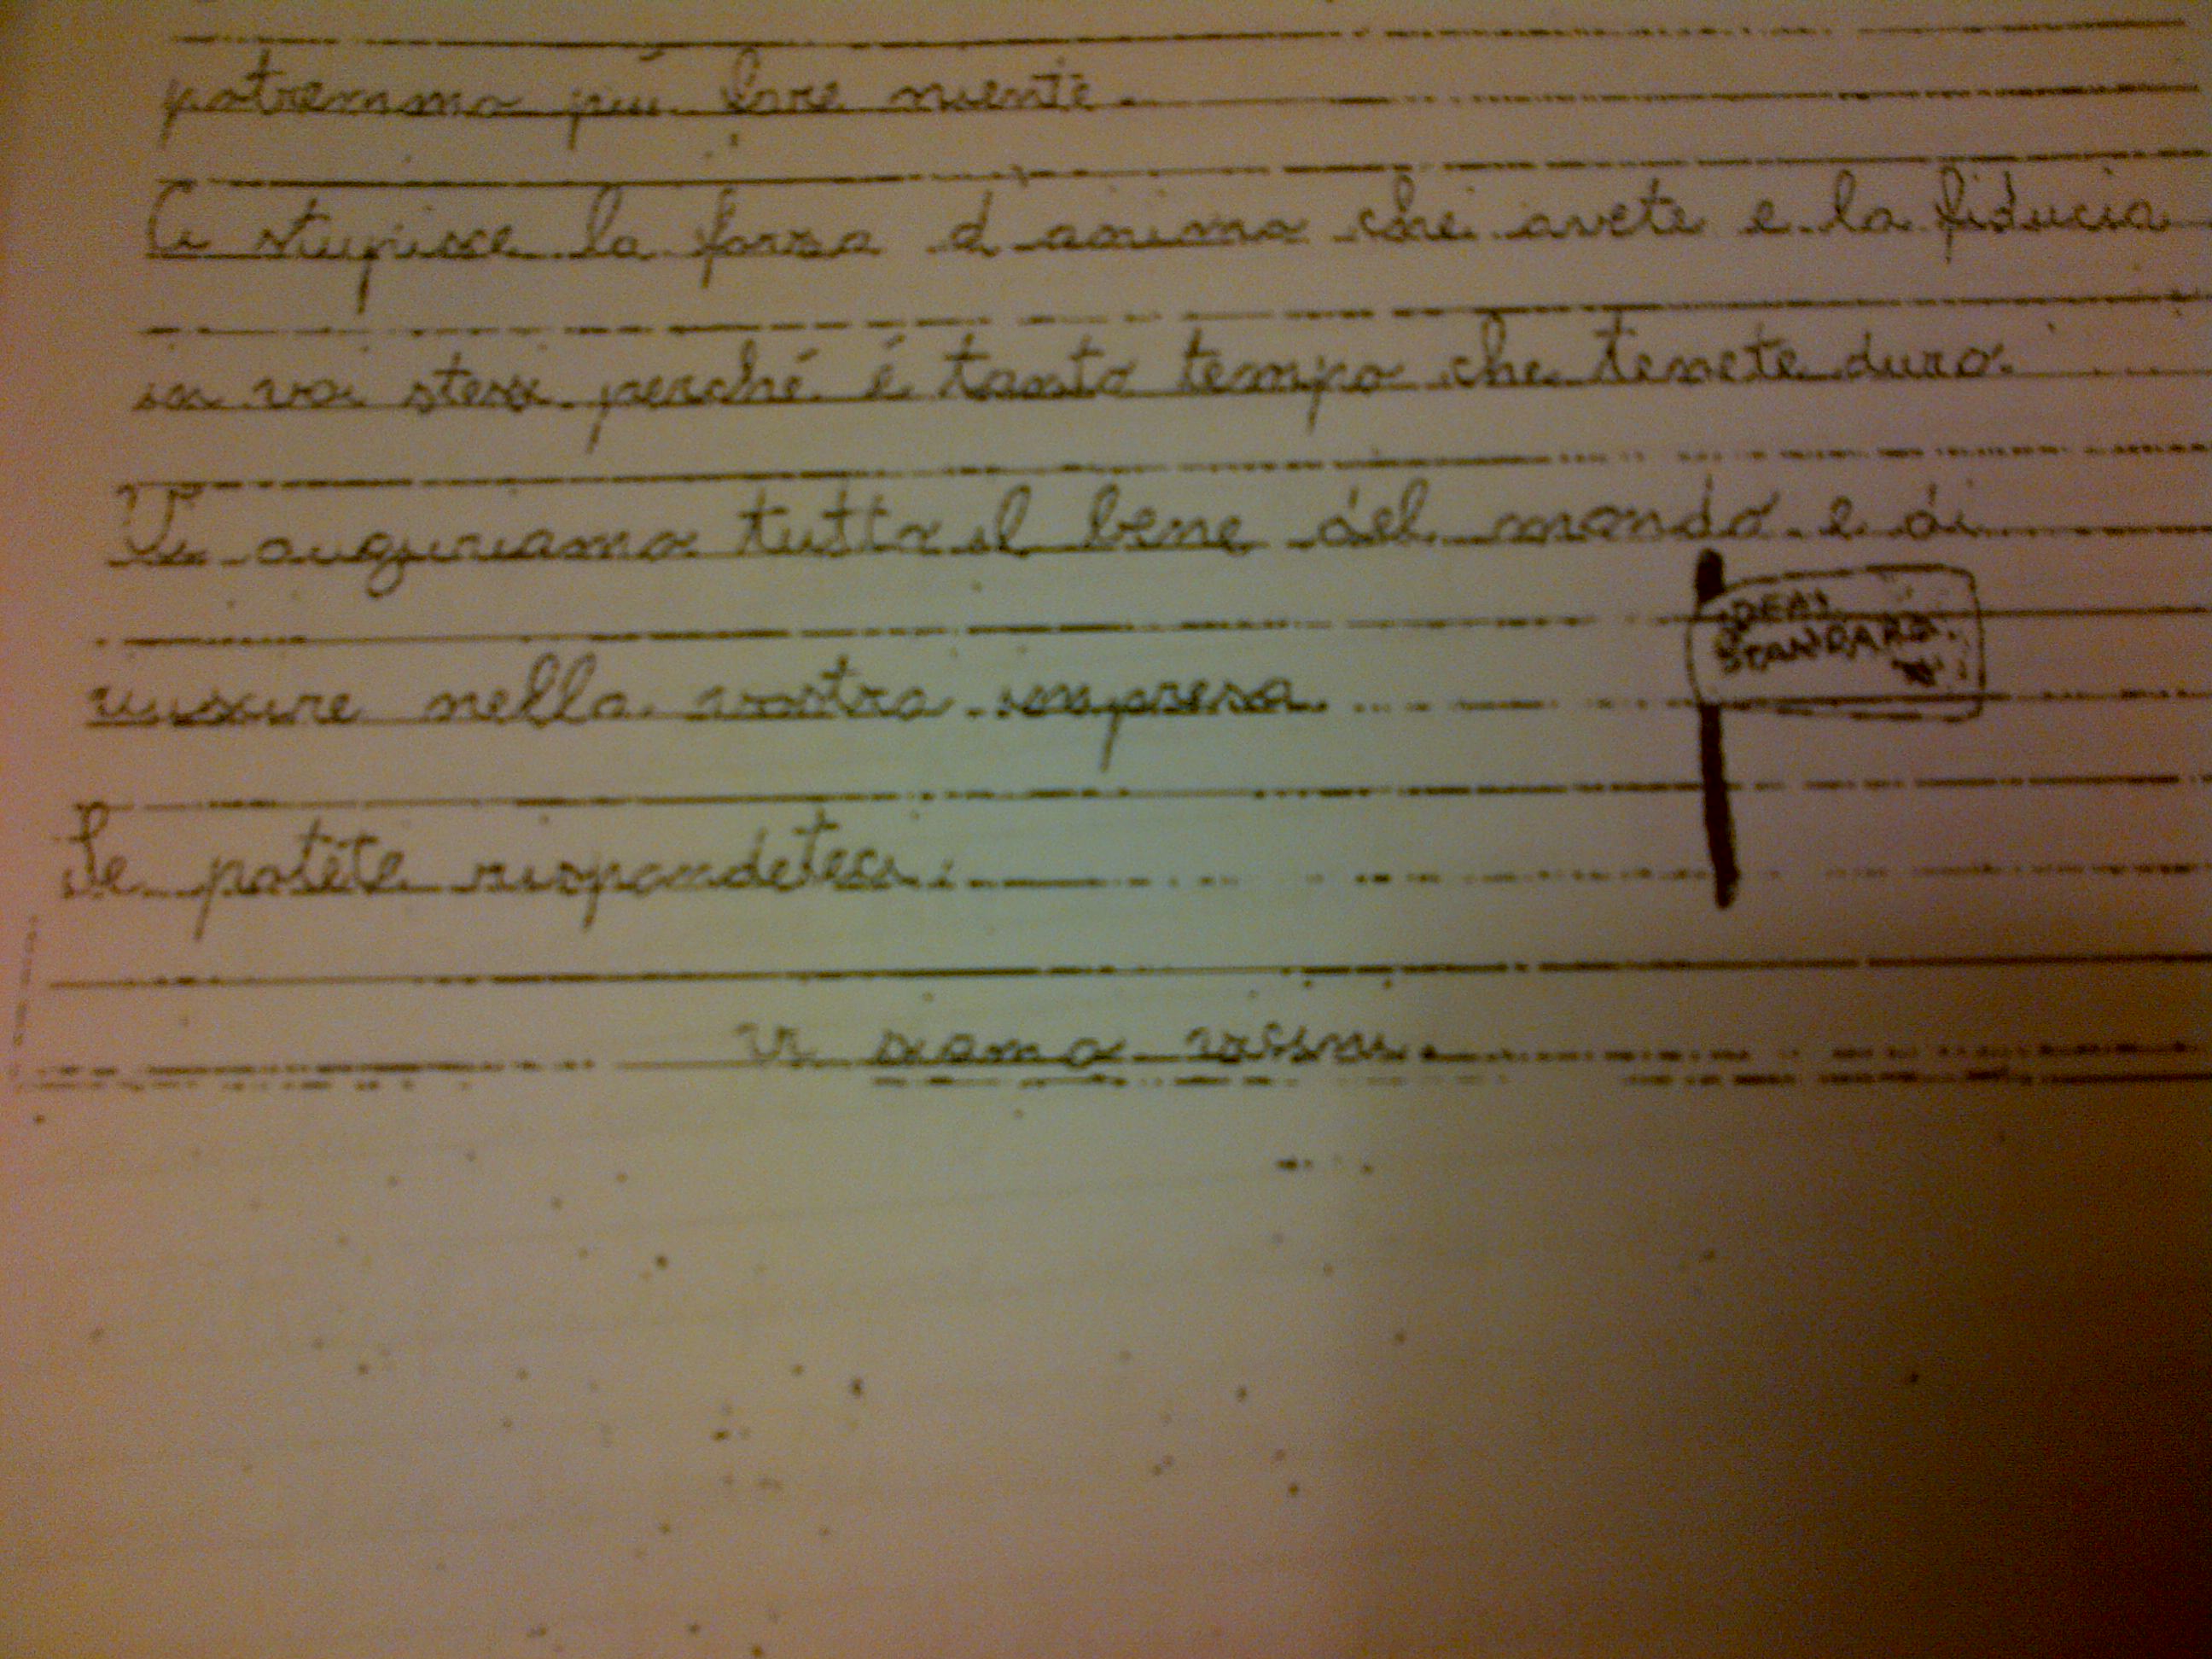 potremmo più fare niente.
Ci stupisce la forza d animo che avete e la fiducia
in voi stessi perché é tanto tempo che tenete duro.
Vi auguriamo tutto il bene del mondo e di
riuscire nella vostra impresa.
IDEAL
STANDARD.
Se potete rispondeteci.
vi siamo vicini.